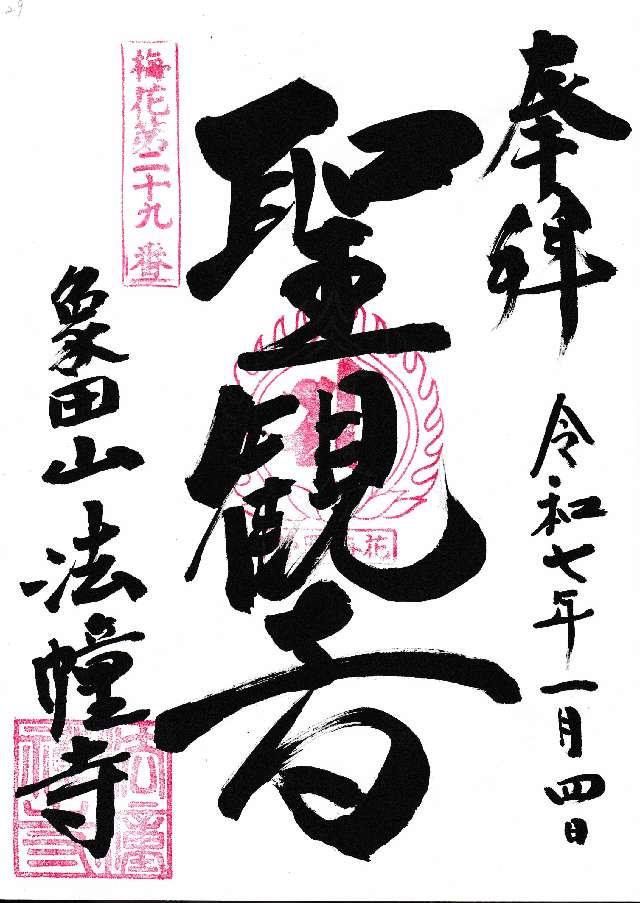 奉拝
令和七年一月四日
聖観音
梅花第二十九番
象田山
法幢寺